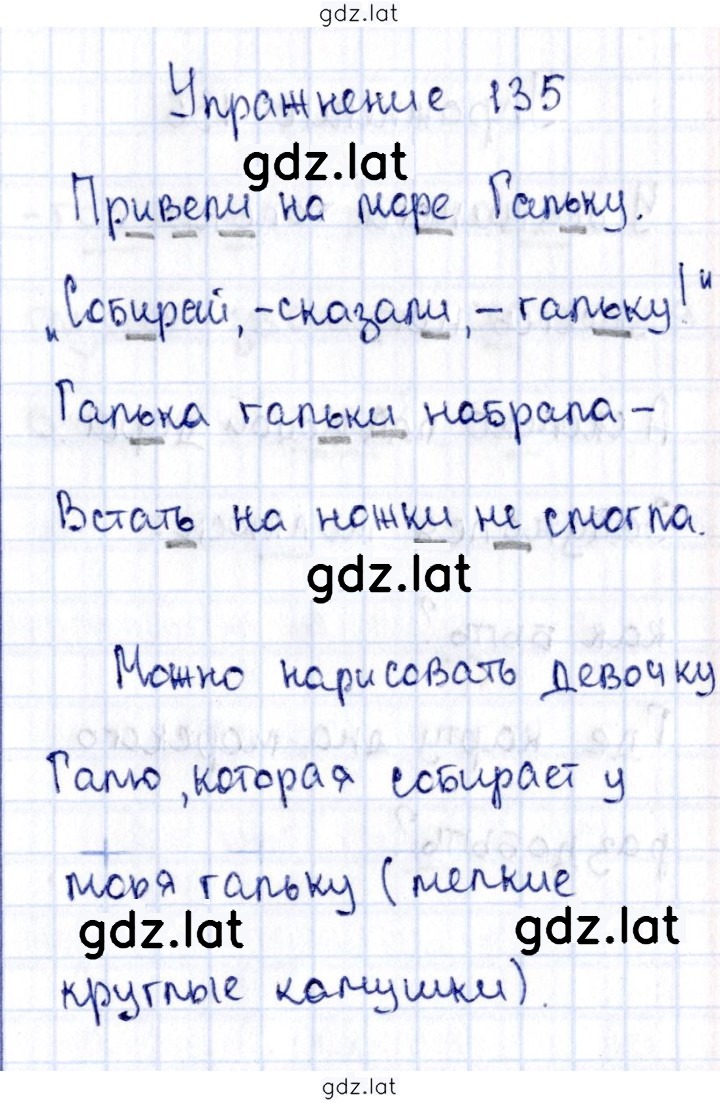 gdz.lat
Упражнение 135
gdz.lat
Привели на море Гальку.
„Собирай, -сказали, - гальку!"
Галька гальки набрала -
Встать на ножки не смогла.
gdz.lat
Можно нарисовать девочку
Галю, которая собирает у
моря гальку (мелкие
gdz.lat gdz.lat
круглые камушки).
gdz.lat